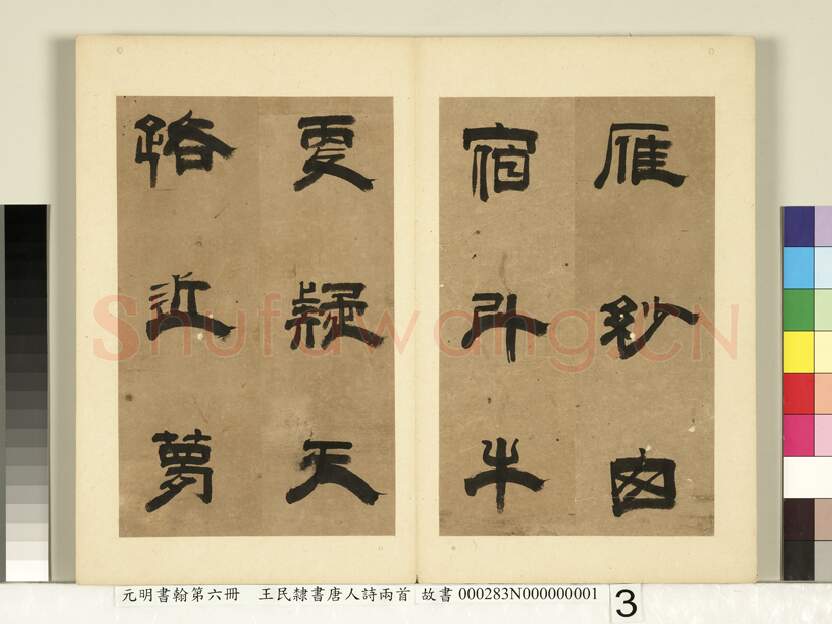 雁紗囱
宿斗牛
更疑天
路近夢
Shufawang.CN
元明書翰第六冊 王民隸書唐人詩兩首 故書 000283N000000001
3